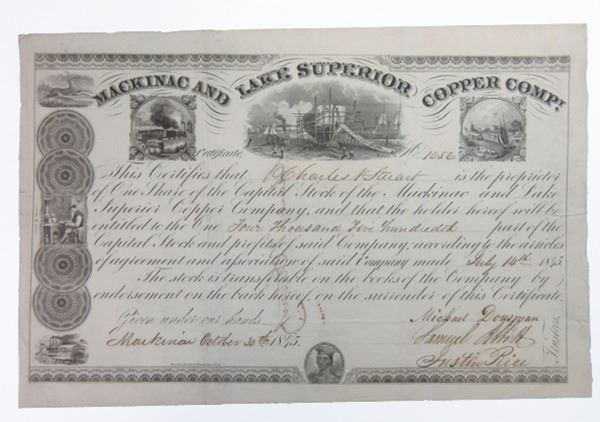 MACKINAC AND LAKE SUPERIOR COPPER COMPY.
Certificate, No. 1056
This Certifies that Charles Stuart is the proprietor
of One Share of the Capital Stock of the Mackinac and Lake
Superior Copper Company, and that the holder hereof will be
entitled to the One Four Thousand Five hundredth part of the
Capital Stock and profits of said Company, according to the articles
of agreement and association of said Company made July 14th 1845.
The stock is transferable on the books of the Company by
endorsement on the back hereof, on the surrender of this Certificate.
Given under our hands
Mackinac October 30th 1845.
Michael Dousman
Samuel Abbott
Justin Rice
Trustees.